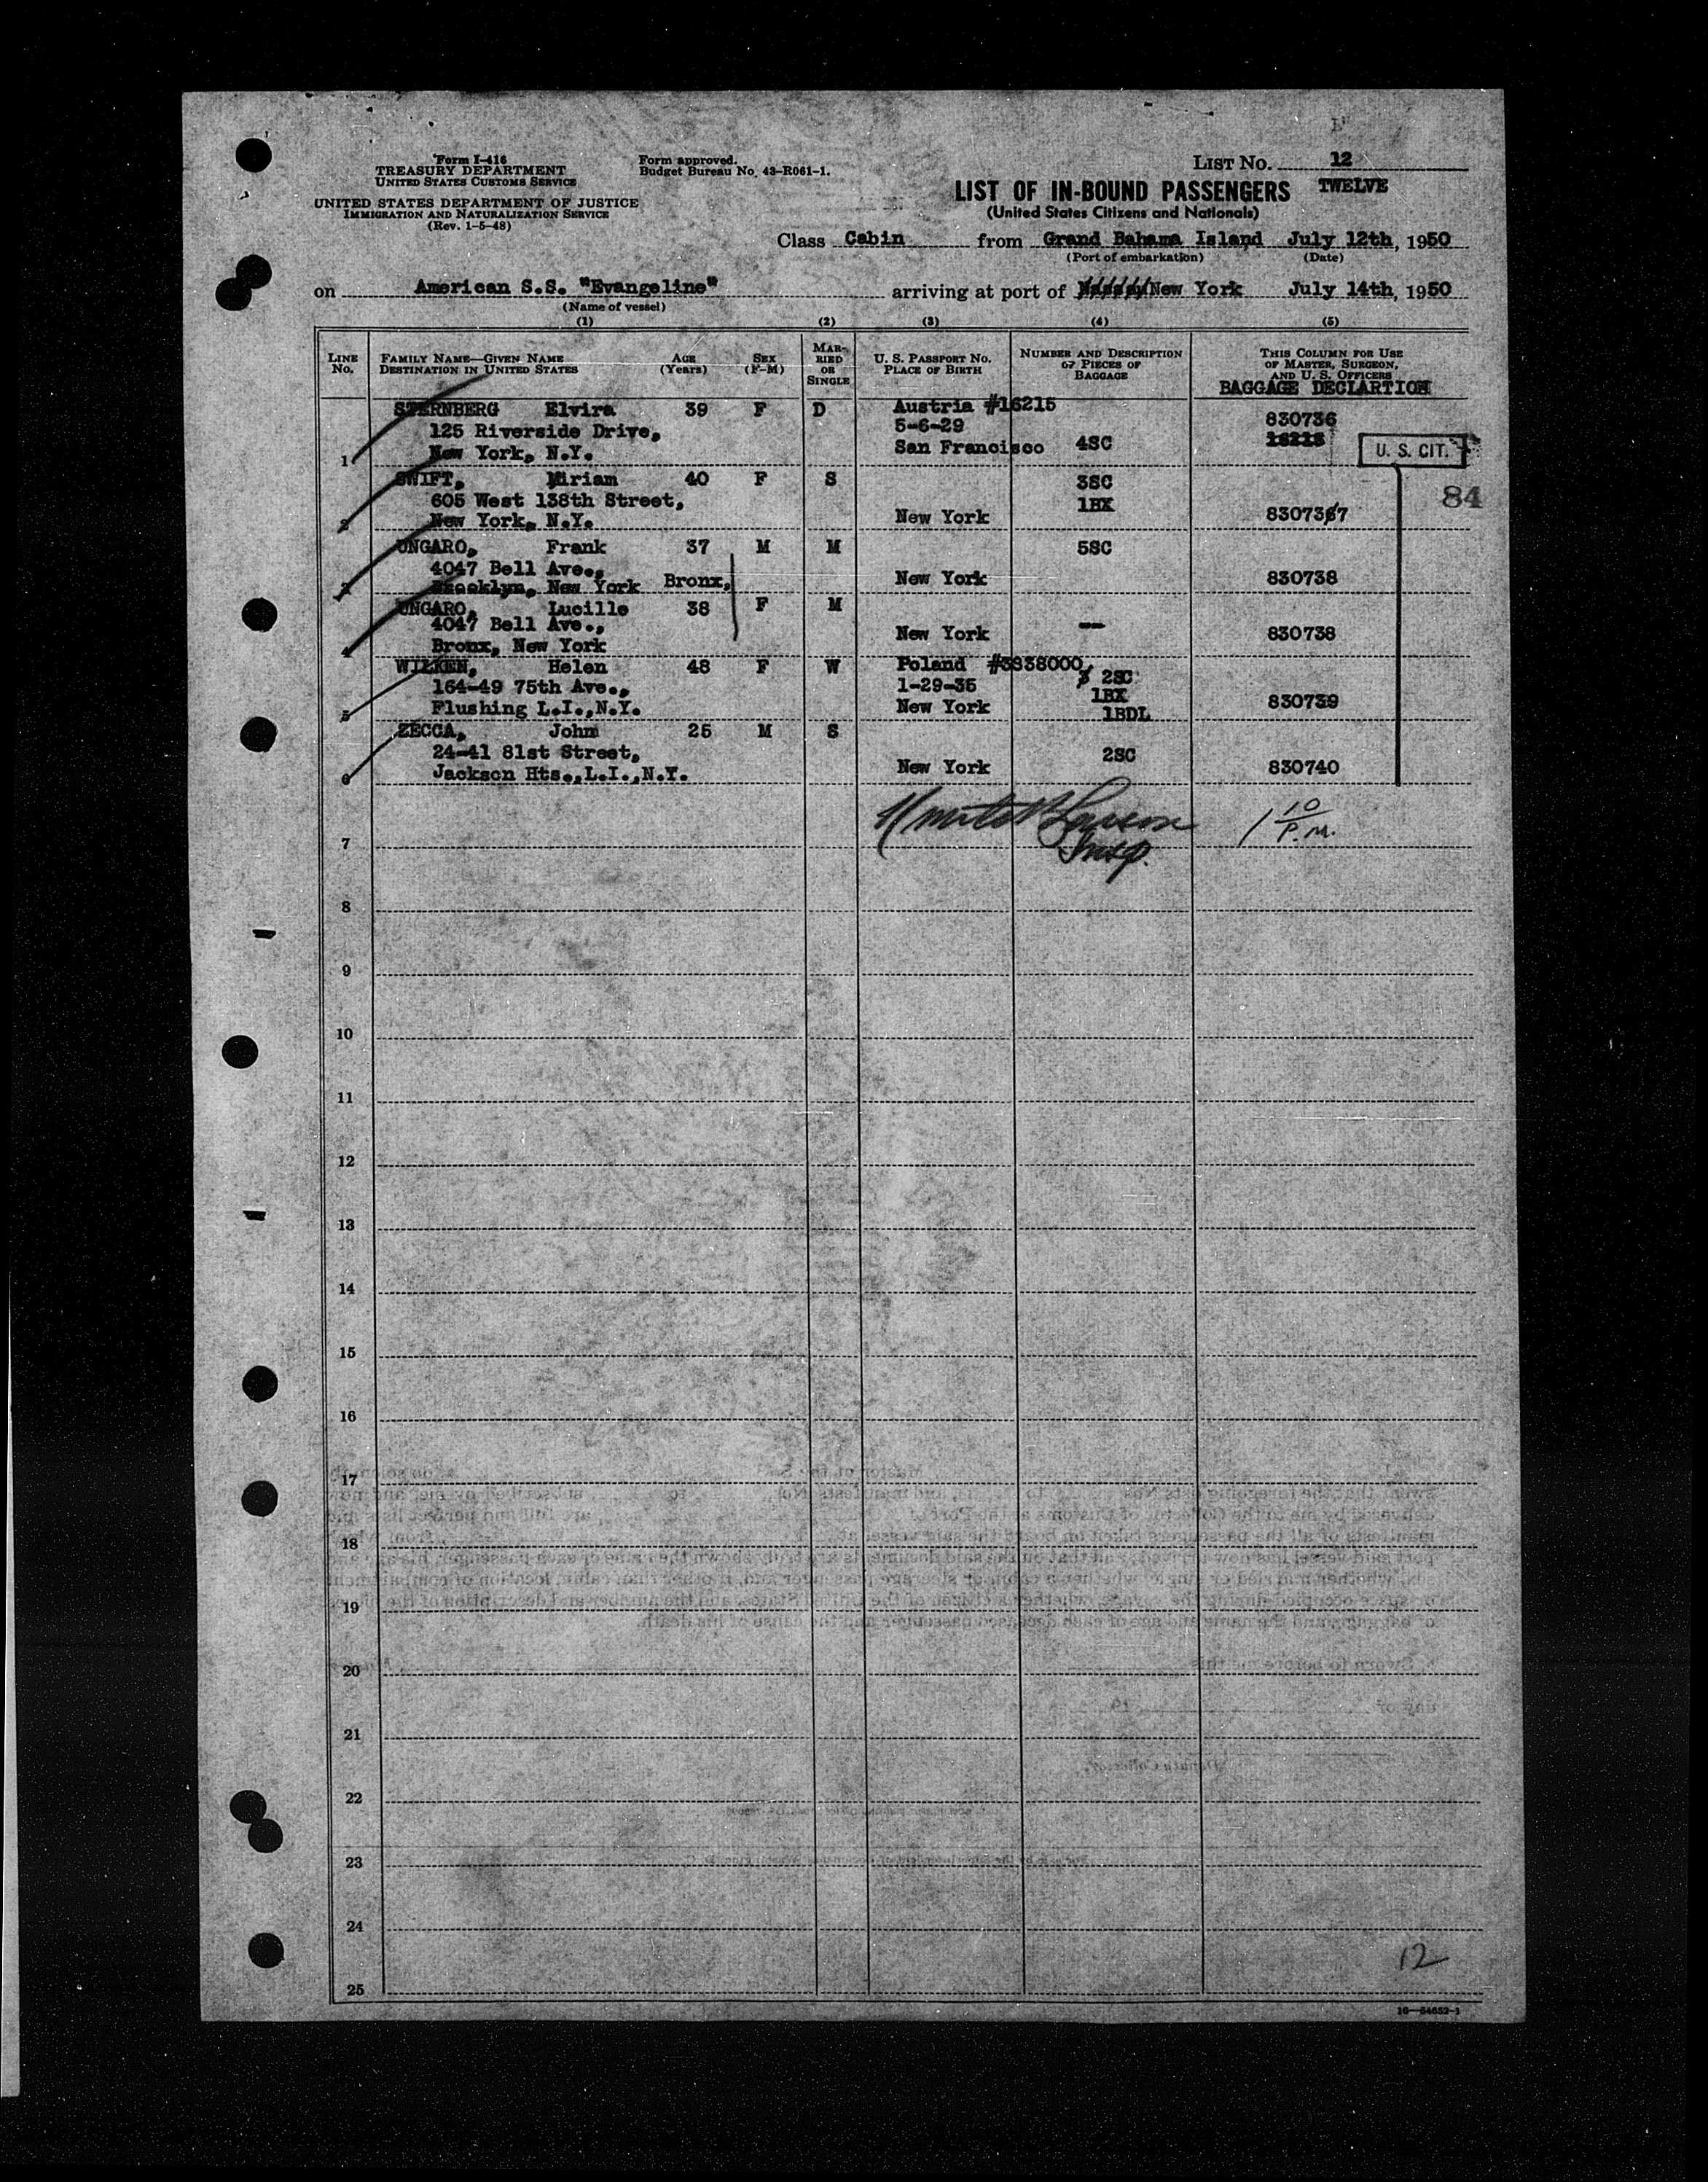 Form I-416
TREASURY DEPARTMENT
UNITED STATES CUSTOMS SERVICE
UNITED STATES DEPARTMENT OF JUSTICE
IMMIGRATION AND NATURALIZATION SERVICE
(Rev. 1-5-48)
Form approved.
Budget Bureau No. 43-R061-1.
LIST NO. 12
LIST OF IN-BOUND PASSENGERS TWELVE
(United States Citizens and Nationals)
Class Cabin from Grand Bahama Island July 12th, 1950
(Port of embarkation) (Date)
on American S.S. "Evangeline" arriving at port of New York July 14th, 1950
(Name of vessel)
(1) (2) (3) (4) (5)
LINE NO.
FAMILY NAME—GIVEN NAME
DESTINATION IN UNITED STATES
AGE (Years)
SEX (F-M)
MARRIED OR SINGLE
U. S. PASSPORT NO.
PLACE OF BIRTH
NUMBER AND DESCRIPTION
OF PIECES OF
BAGGAGE
THIS COLUMN FOR USE
OF MASTER, SURGEON,
AND U. S. OFFICERS
BAGGAGE DECLARTION
STERNBERG Elvira 39 F D Austria #16215 830736
125 Riverside Drive, 5-6-29 16215
1 New York, N.Y. San Francisco 4SC U. S. CIT.
SWIFT, Miriam 40 F S 3SC 84
605 West 138th Street, 1BX
2 New York, N.Y. New York 830737
UNGARO, Frank 37 M M 5SC
4047 Bell Ave.,
3 Brooklyn, New York Bronx, New York 830738
UNGARO, Lucille 38 F M
4047 Bell Ave., New York -- 830738
4 Bronx, New York
WILKEN, Helen 48 F W Poland #3338000
164-49 75th Ave., 1-29-35 2SC
1BX
5 Flushing L.I.,N.Y. New York 1BDL 830739
ZECCA, John 25 M S
24-41 81st Street, 2SC
6 Jackson Hts.,L.I.,N.Y. New York 830740
Insp. 1 10 P.M.
7
8
9
10
11
12
13
14
15
16
17
18
19
20
21
22
23
24
12
25
16—54652-1